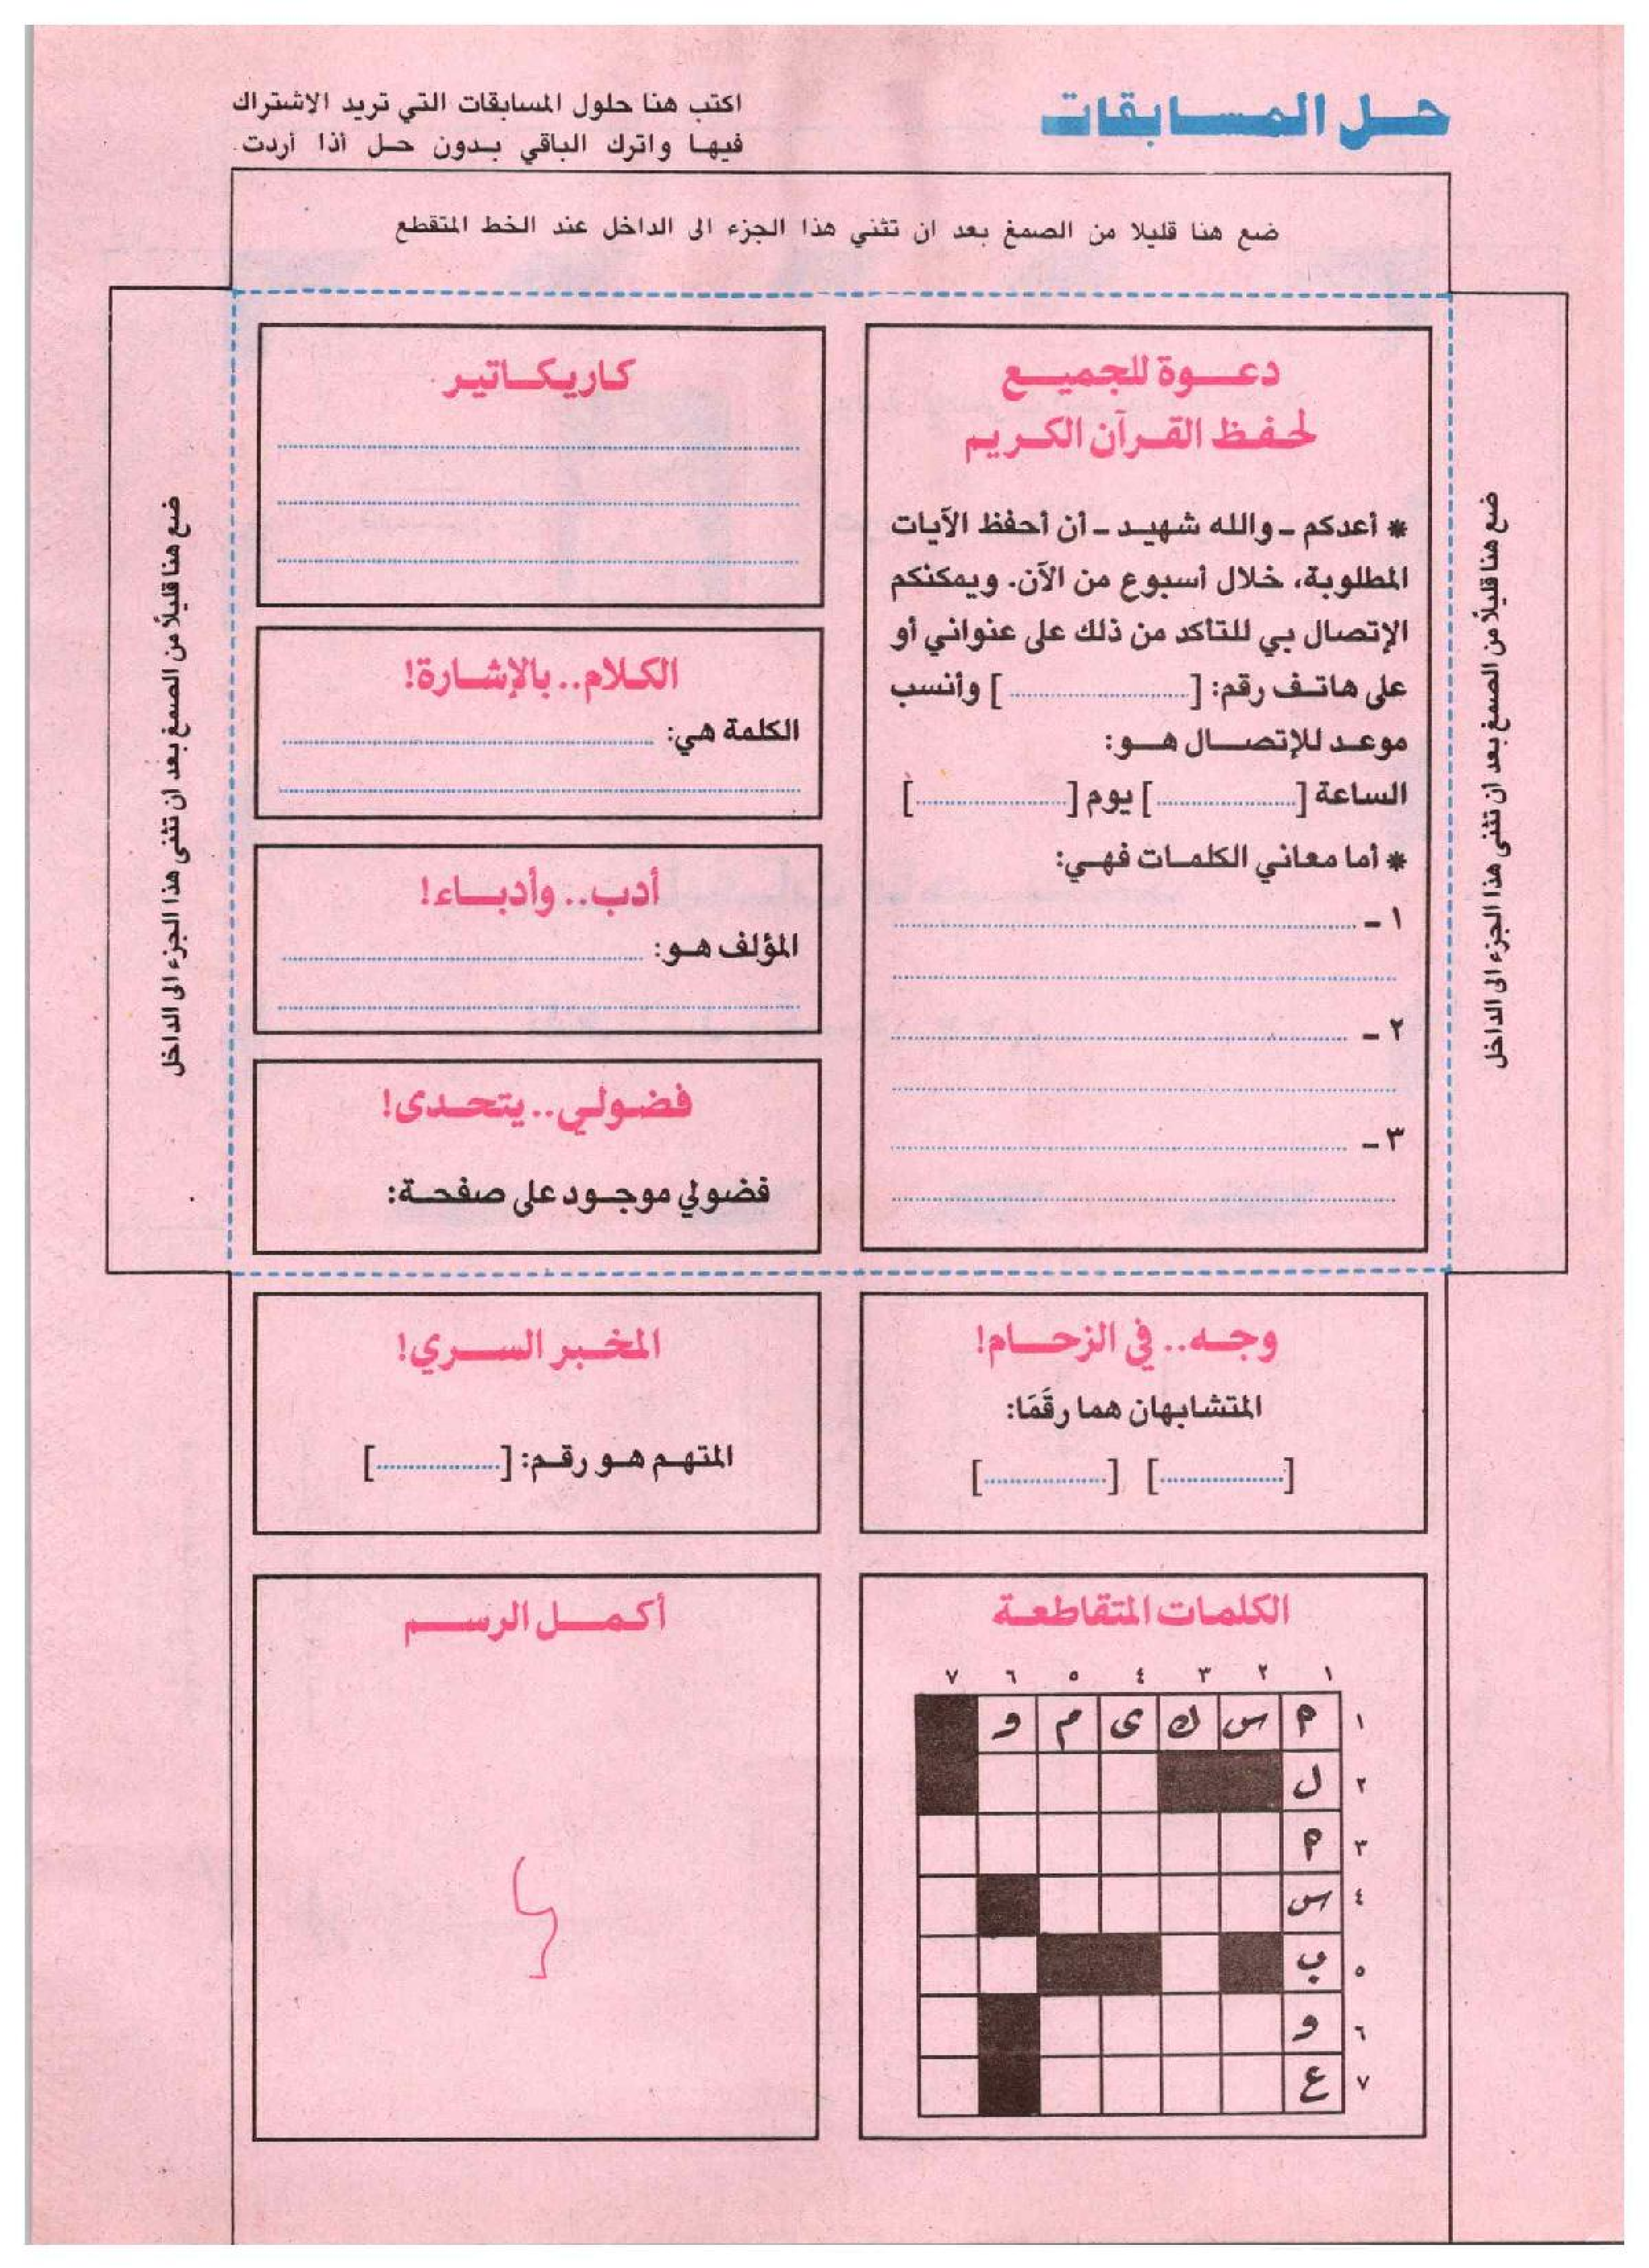 حل المسابقات
اكتب هنا حلول المسابقات التي تريد الاشتراك
فيها واترك الباقي بدون حل أذا أردت.
ضع هنا قليلا من الصمغ بعد ان تثني هذا الجزء الى الداخل عند الخط المتقطع
ضع هنا قليلاً من الصمغ بعد ان تثنى هذا الجزء الى الداخل
دعوة للجميع
لحفظ القرآن الكريم
* أعدكم ـ والله شهيد ـ أن أحفظ الآيات
المطلوبة، خلال أسبوع من الآن. ويمكنكم
الإتصال بي للتأكد من ذلك على عنواني أو
على هاتف رقم: [....................] وأنسب
موعد للإتصال هو:
الساعة [....................] يوم [....................]
* أما معاني الكلمات فهي:
١ ـ
٢ ـ
٣ ـ
كاريكاتير
الكلام.. بالإشارة!
الكلمة هي:
أدب.. وأدباء!
المؤلف هو:
فضولي.. يتحدى!
فضولي موجود على صفحة:
ضع هنا قليلاً من الصمغ بعد ان تثنى هذا الجزء الى الداخل
وجه.. في الزحام!
المتشابهان هما رقَمَا:
[....................] [....................]
المخبر السري!
المتهم هو رقم: [....................]
الكلمات المتقاطعة
١ ٢ ٣ ٤ ٥ ٦ ٧
١ م س ك ى م و
٢ ل
٣ م
٤ س
٥ ب
٦ و
٧ ع
أكمل الرسم